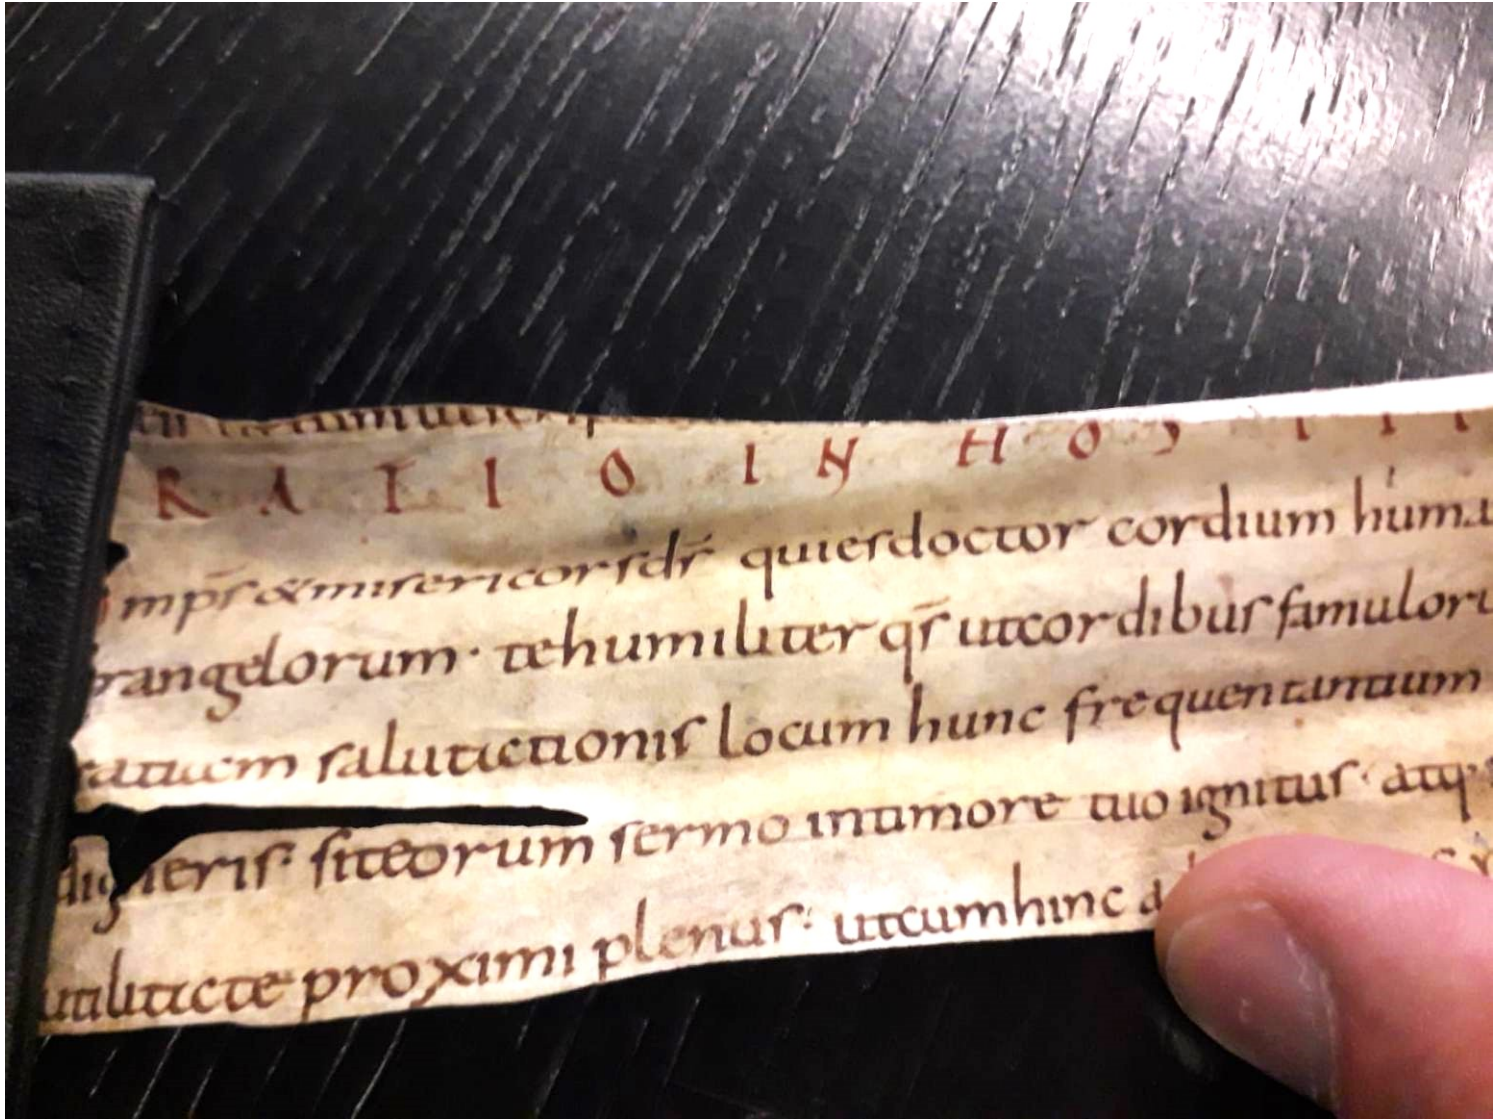 RATIO IN HOS
mp̄s & misericors d̄s qui es doctor cordium huma
rangelorum · te humiliter q̄s ut cordibus famuloru
salutationis locum hunc frequentantium
digneris · sit eorum sermo in timore tuo ignitus · atq·
utilitate proximi plenus · ut cum hinc